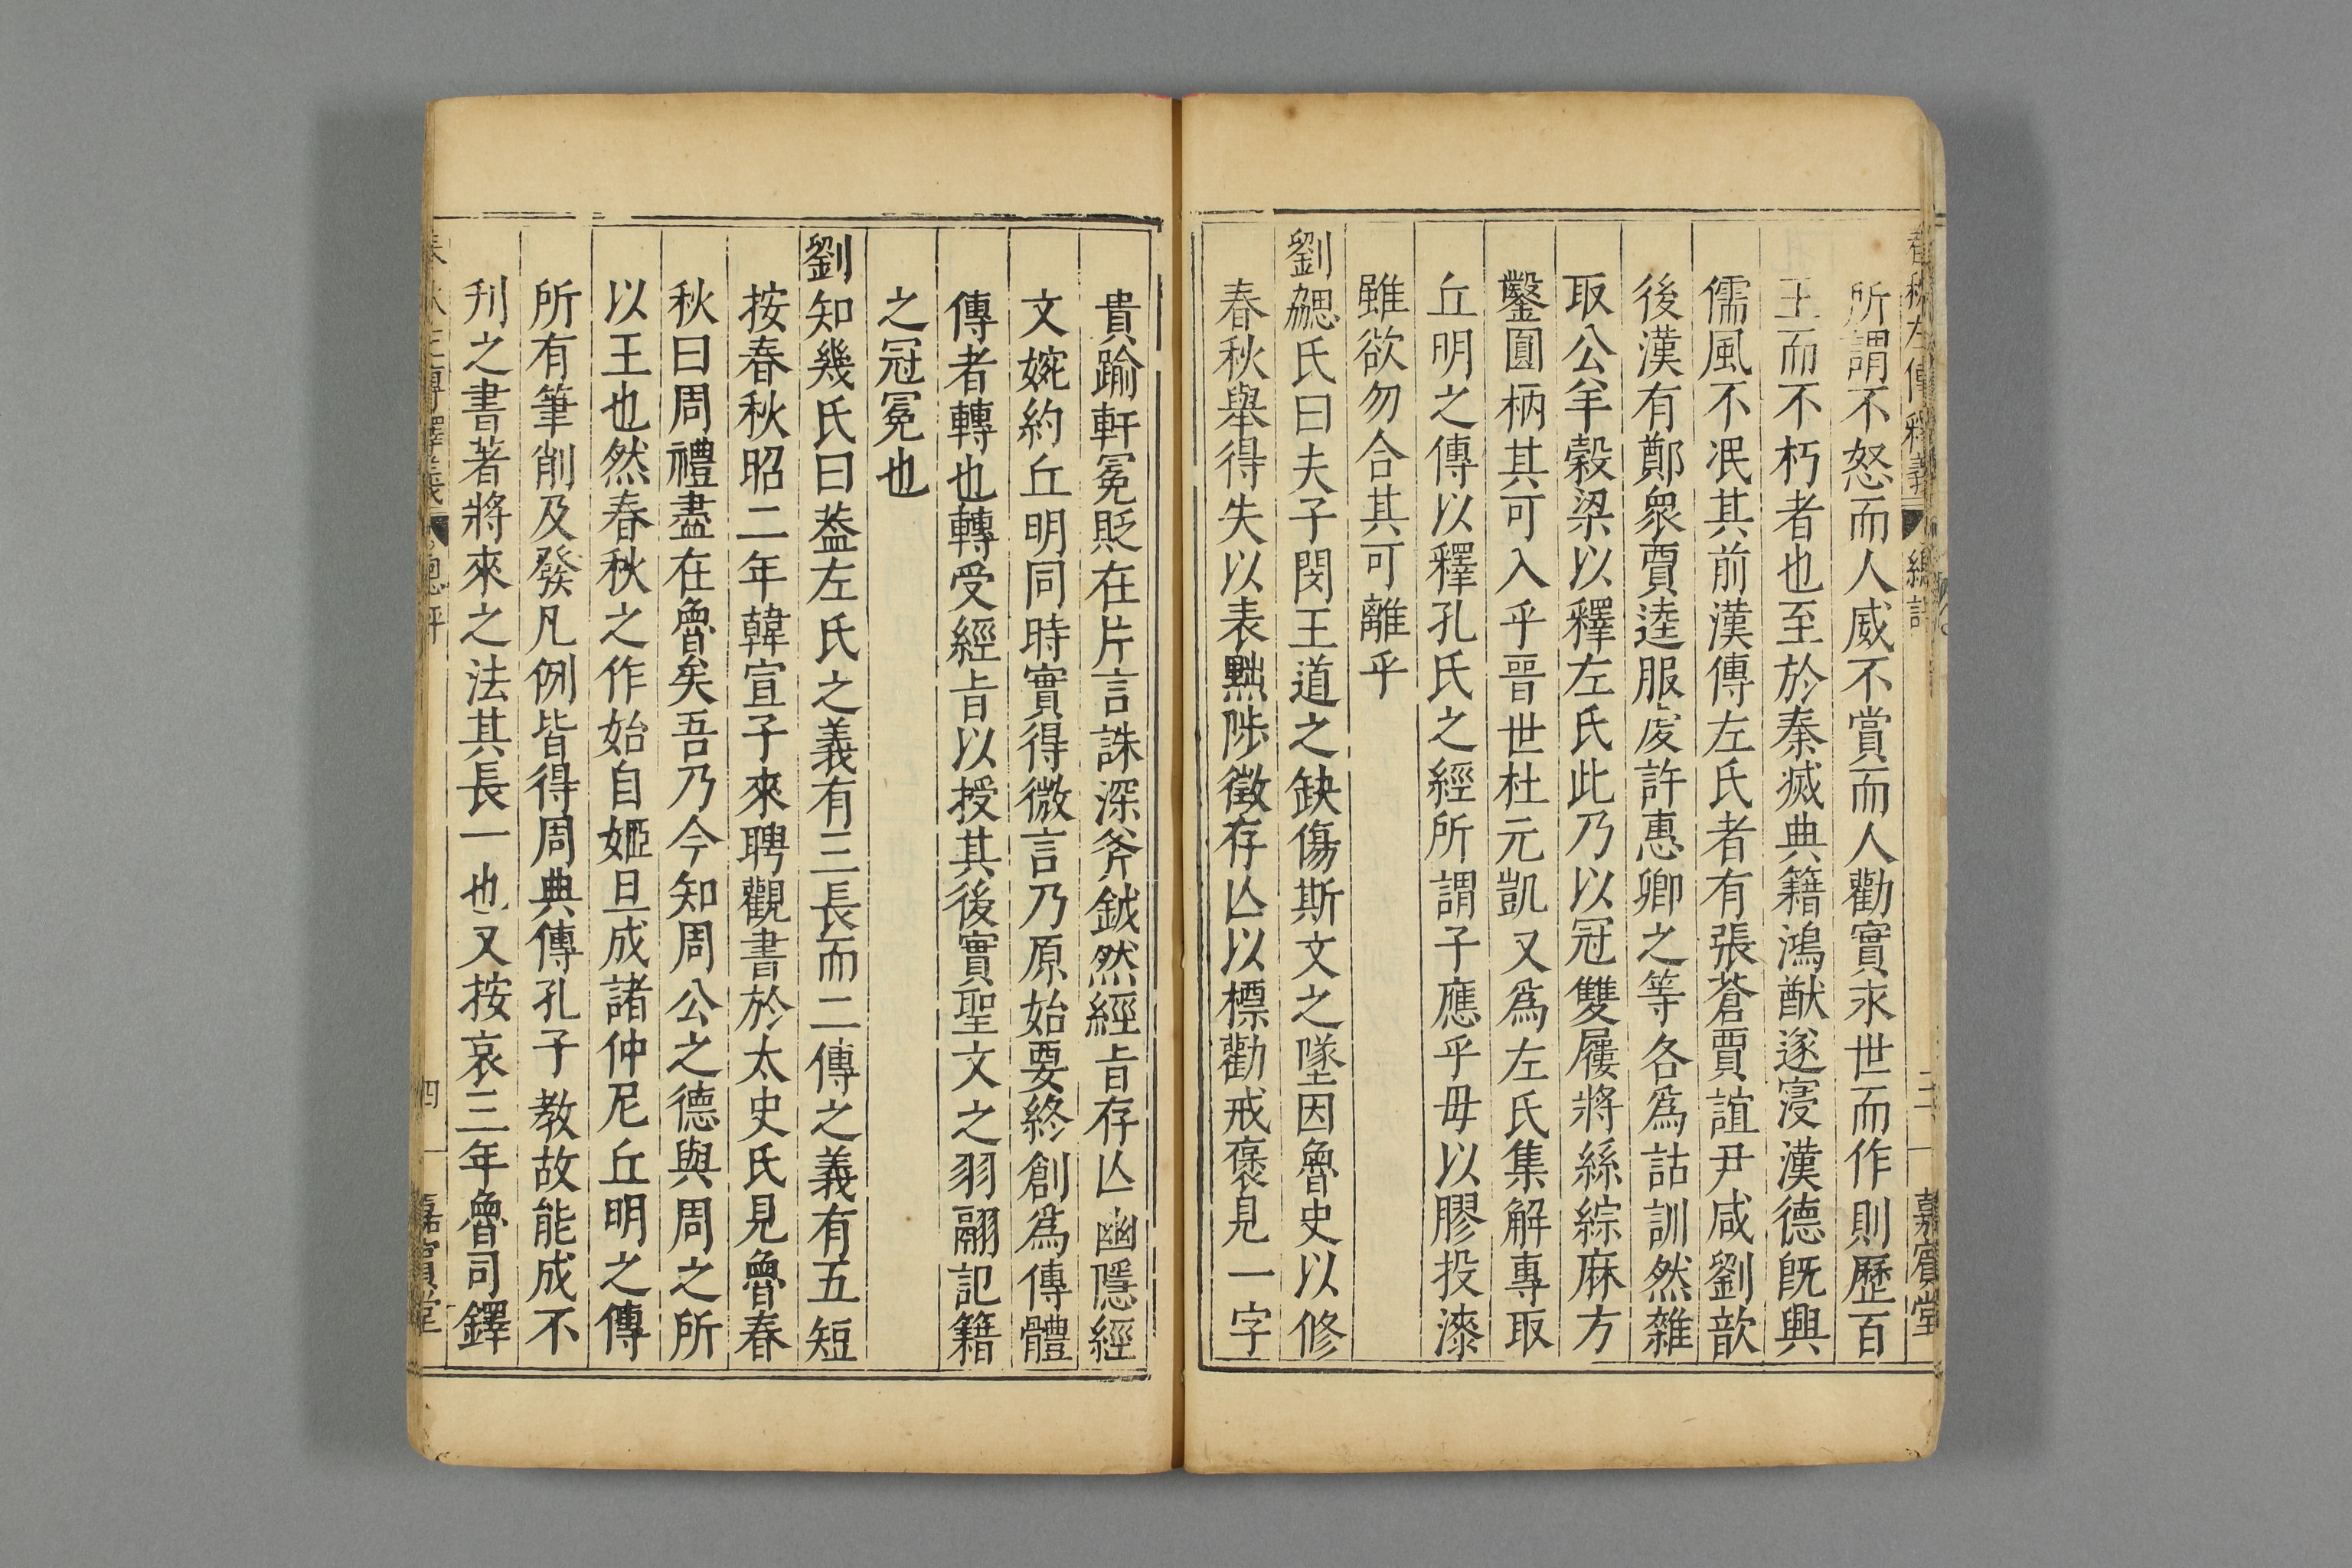 春秋左傳釋義 總評 三 嘉賓堂
所謂不怒而人威不賞而人勸實永世而作則歷百
王而不朽者也至於秦滅典籍鴻猷遂寖漢德既興
儒風不泯其前漢傳左氏者有張蒼賈誼尹咸劉歆
後漢有鄭衆賈逵服虔許惠卿之等各爲詁訓然雜
取公羊穀梁以釋左氏此乃以冠雙屨將絲綜麻方
鑿圓柄其可入乎晉世杜元凱又爲左氏集解專取
丘明之傳以釋孔氏之經所謂子應乎毋以膠投漆
雖欲勿合其可離乎
劉勰氏曰夫子閔王道之缺傷斯文之墜因魯史以修
春秋舉得失以表黜陟徵存亾以標勸戒褒見一字
貴踰軒冕貶在片言誅深斧鉞然經旨存亾幽隱經
文婉約丘明同時實得微言乃原始要終創爲傳體
傳者轉也轉受經旨以授其後實聖文之羽翮記籍
之冠冕也
劉知幾氏曰葢左氏之義有三長而二傳之義有五短
按春秋昭二年韓宣子來聘觀書於太史氏見魯春
秋曰周禮盡在魯矣吾乃今知周公之德與周之所
以王也然春秋之作始自姬旦成諸仲尼丘明之傳
所有筆削及發凡例皆得周典傳孔子教故能成不
刋之書著將來之法其長一也又按哀三年魯司鐸
春秋左傳釋義 總評 四 嘉賓堂